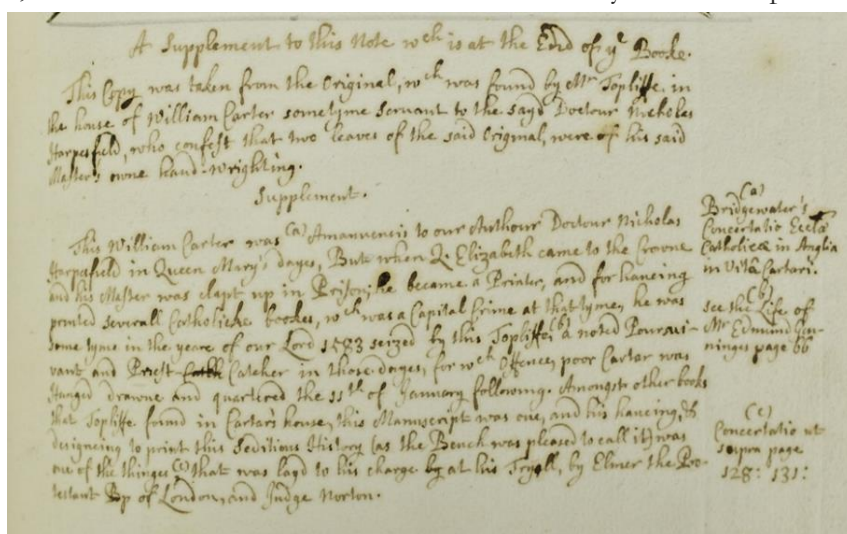 A Supplement to this Note wch is at the End of ye Booke.
This Copy was taken from the Original, wch was found by Mr Topliffe in
the house of William Carter sometyme Servant to the sayd Doctour Nicholas
Harpesfield, who confest that two leaves of the said Original, were of his said
Master's owne hand-wrighting.
Supplement.
This William Carter was (a) Amanuensis to our Authour Doctour Nicholas
Harpesfield in Queen Mary's dayes, But when Q. Elizabeth came to the Crowne
and his Master was clapt up in Prison, he became a Printer, and for haueing
printed severall Catholicke bookes, wch was a Capital Crime at that tyme, he was
some tyme in the yeare of our Lord 1583 seized by this Topliffe, (b) a noted Poursui-
vant and Priest Catcher in those dayes, for wch Offence, poor Carter was
Hanged drawne and quartered the 11th of January following. Amongst other books
that Topliffe found in Cartar's house, this Manuscript was one, and his haueing, &
designeing to print this Seditious History (as the Bench was pleased to call it) was
one of the thinges (c) that was layd to his charge by at his Tryall, by Elmer the Pro-
testant Bp of London, and Judge Norton.
(a)
Bridgewater's
Concertatio Ecclæ
Catholicæ in Anglia
in Vitâ Cartari.
(b)
see the Life of
Mr Edmund Gen-
ninges page 66
(c)
Concertatio ut
supra page
128: 131: